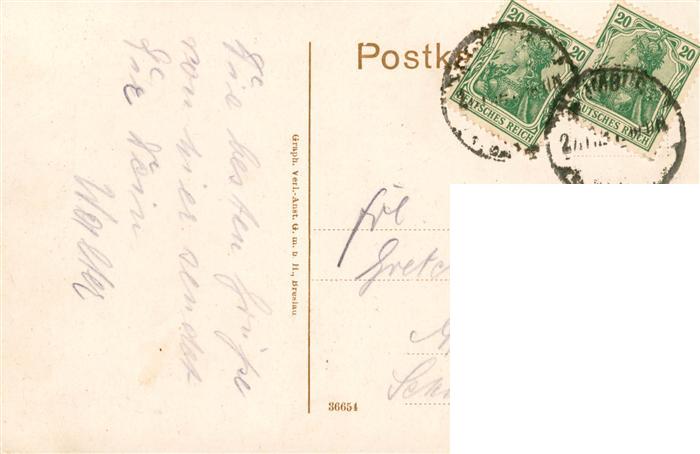 Postka
20
20
DEUTSCHES REICH
DEUTSCHES REICH
Die besten Grüße
von hier sendet
Dir Dein
Walter
Graph. Verl.-Anst. G. m. b. H., Breslau.
Frl.
Gretch
Sch
36654